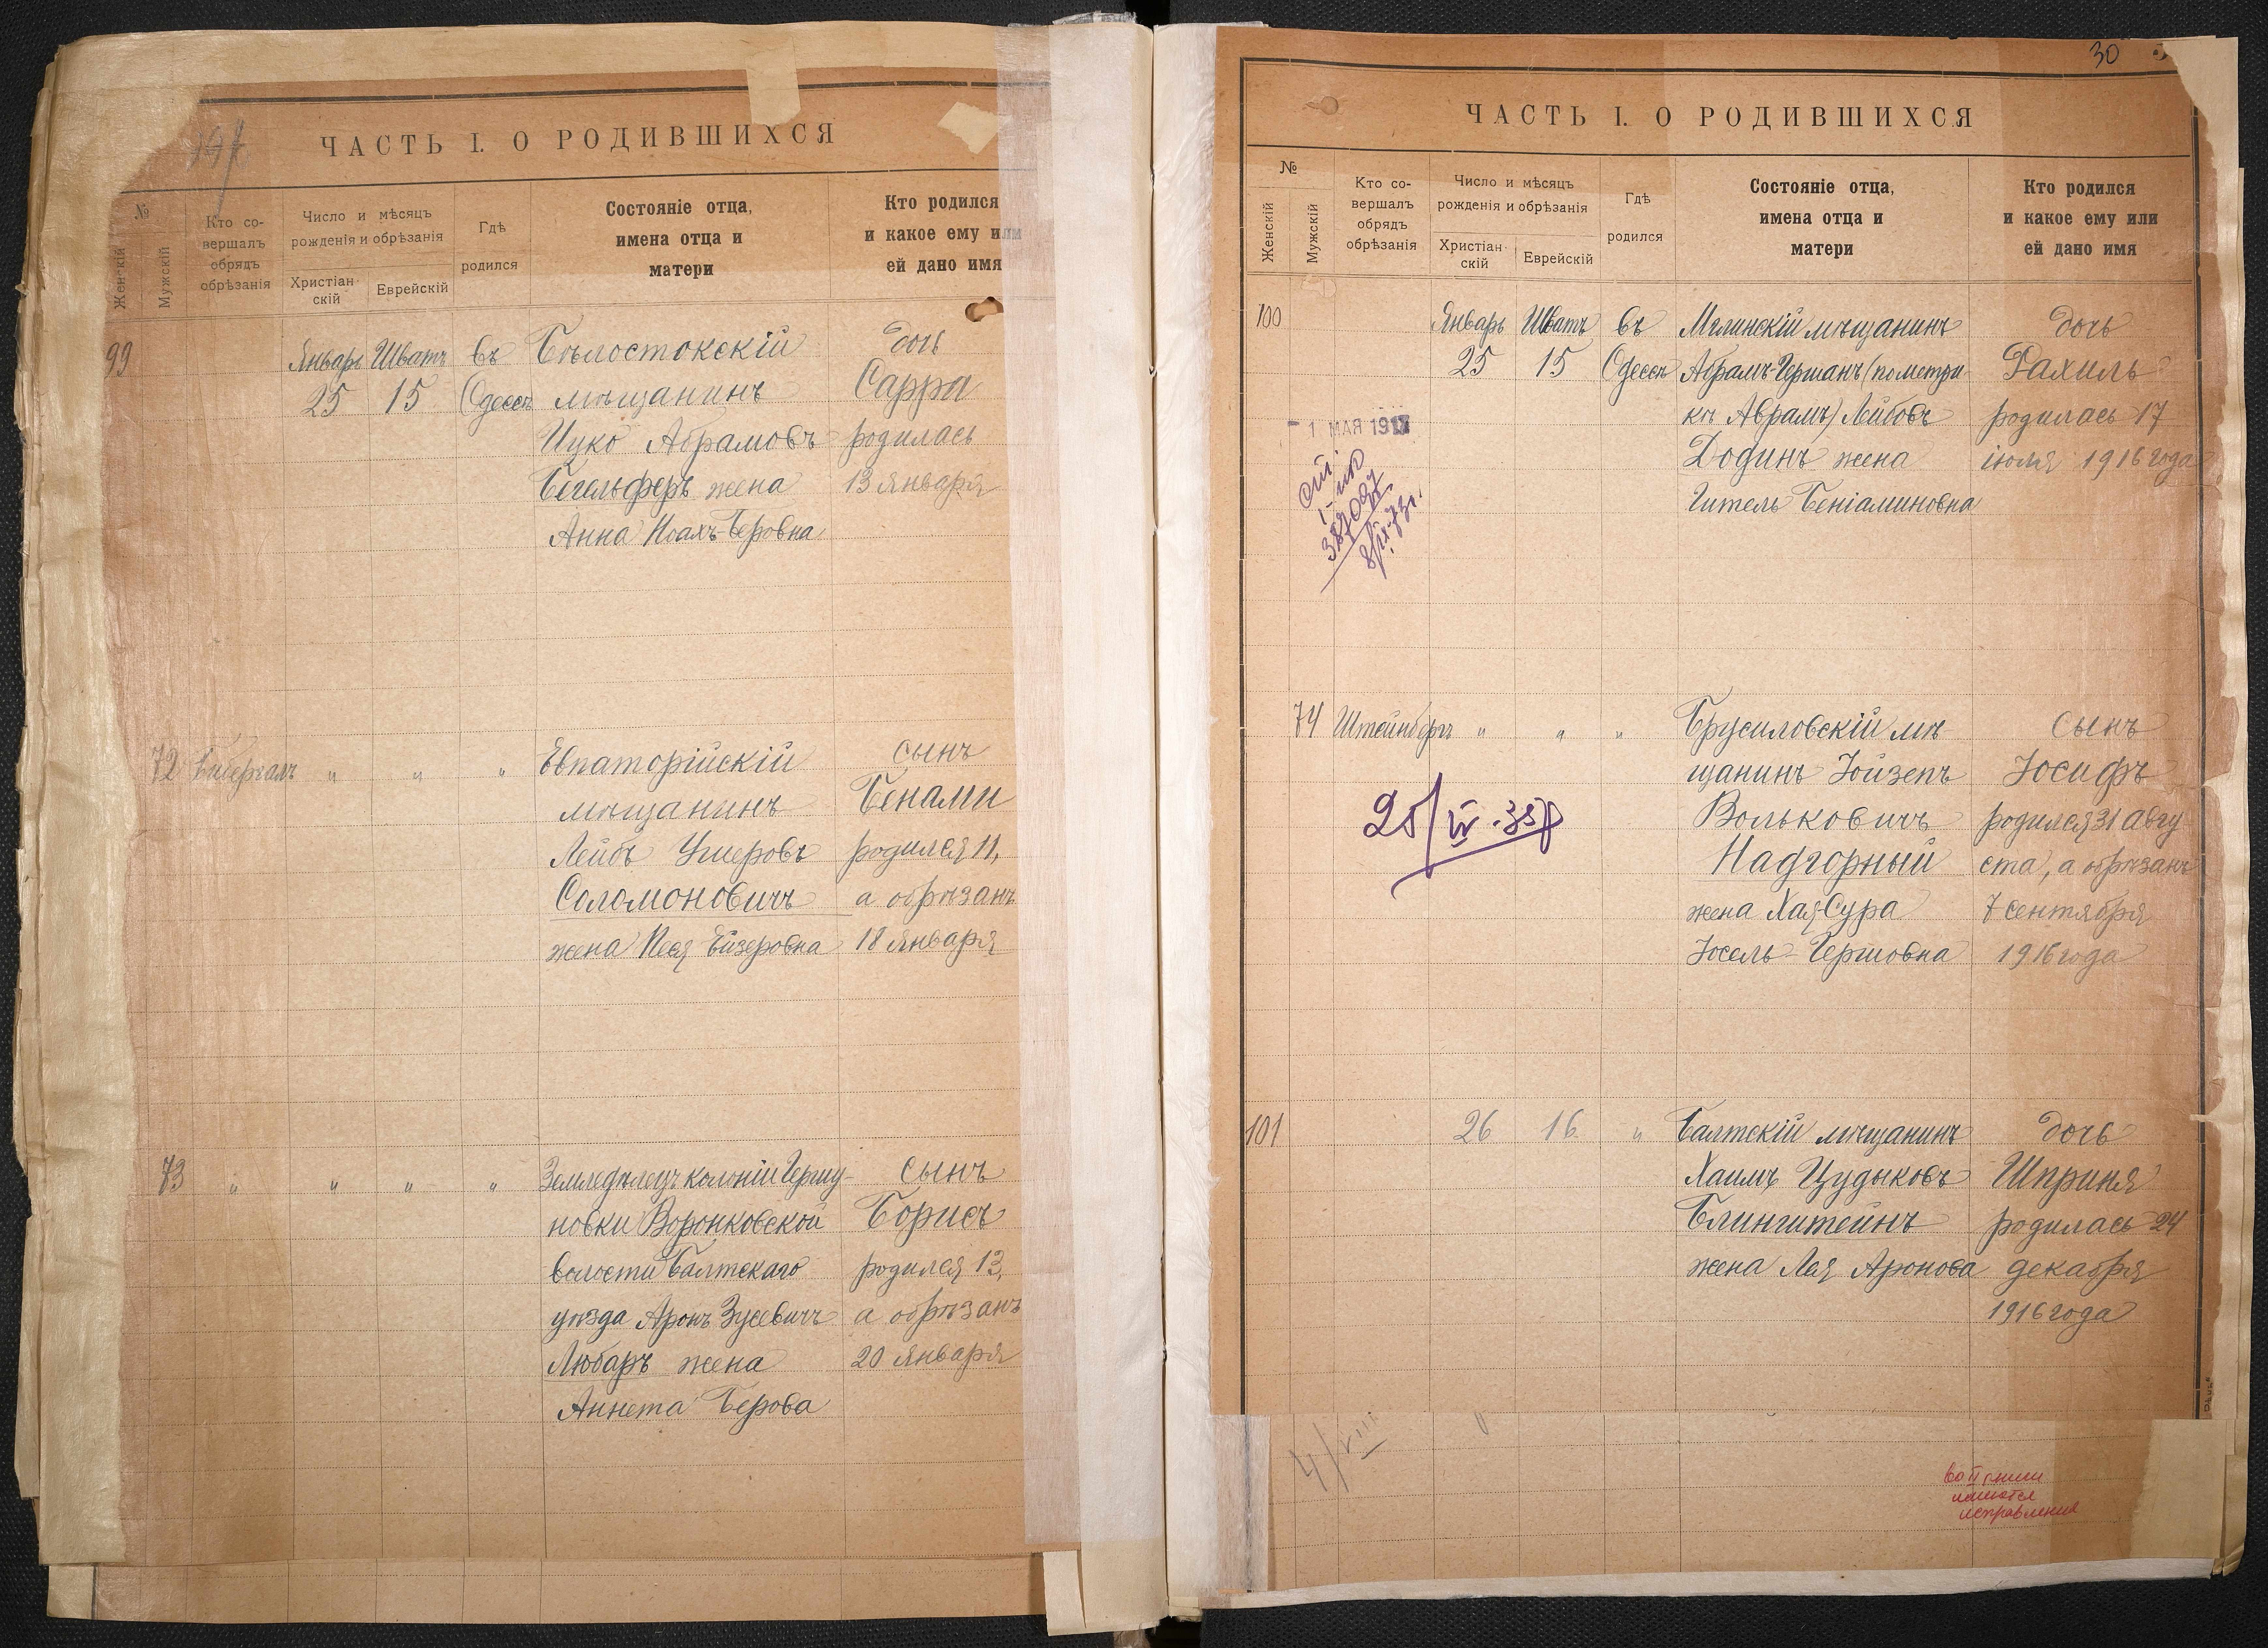 ЧАСТЬ I. О РОДИВШИХСЯ
№
Женскій
Мужскій
Кто со-
вершалъ
обрядъ
обрѣзанія
Число и мѣсяцъ
рожденія и обрѣзанія
Христіан-
скій
Еврейскій
Гдѣ
родился
Состояніе отца,
имена отца и
матери
Кто родился
и какое ему или
ей дано имя
99
Январь
25
Шватъ
15
въ
Одессѣ
Бѣлостокскій
мѣщанинъ
Ицко Абрамовъ
Бегельферъ жена
Анна Ноахъ-Беровна
дочь
Сарра
родилась
13 января
72
" " "
Евпаторійскій
мѣщанинъ
Лейбъ Ушеровъ
Соломоновичъ
жена Песя Ейзеровна
сынъ
Бенами
родился 11,
а обрѣзанъ
18 января
73
" " " "
Земледѣлецъ колоніи Гершу-
новки Воронковской
волости Балтскаго
уѣзда Аронъ Зусевичъ
Любаръ жена
Аннета Берова
сынъ
Борисъ
родился 13,
а обрѣзанъ
20 января
30
ЧАСТЬ I. О РОДИВШИХСЯ
№
Женскій
Мужскій
Кто со-
вершалъ
обрядъ
обрѣзанія
Число и мѣсяцъ
рожденія и обрѣзанія
Христіан-
скій
Еврейскій
Гдѣ
родился
Состояніе отца,
имена отца и
матери
Кто родился
и какое ему или
ей дано имя
100
Январь
25
Шватъ
15
въ
Одессѣ
Мглинскій мѣщанинъ
Абрамъ-Гершанъ (по метри-
кѣ Аврамъ) Лейбовъ
Додинъ жена
Гитель Беніаминовна
дочь
Рахиль
родилась 17
іюля 1916 года
- 1 МАЯ 1917
74
Штейнбергъ
" " "
Брусиловскій мѣ-
щанинъ Іойзепъ
Вольковичъ
Надгорный
жена Хая-Сура
Іосель-Гершовна
сынъ
Іосифъ
родился 31 авгу
ста, а обрѣзанъ
7 сентября
1916 года
101
26
16
"
Балтскій мѣщанинъ
Хаимъ Цудыковъ
Блинштейнъ
жена Лея Аронова
дочь
Шприня
родилась 24
декабря
1916 года
4/VIII
во II книги
имеются
исправления